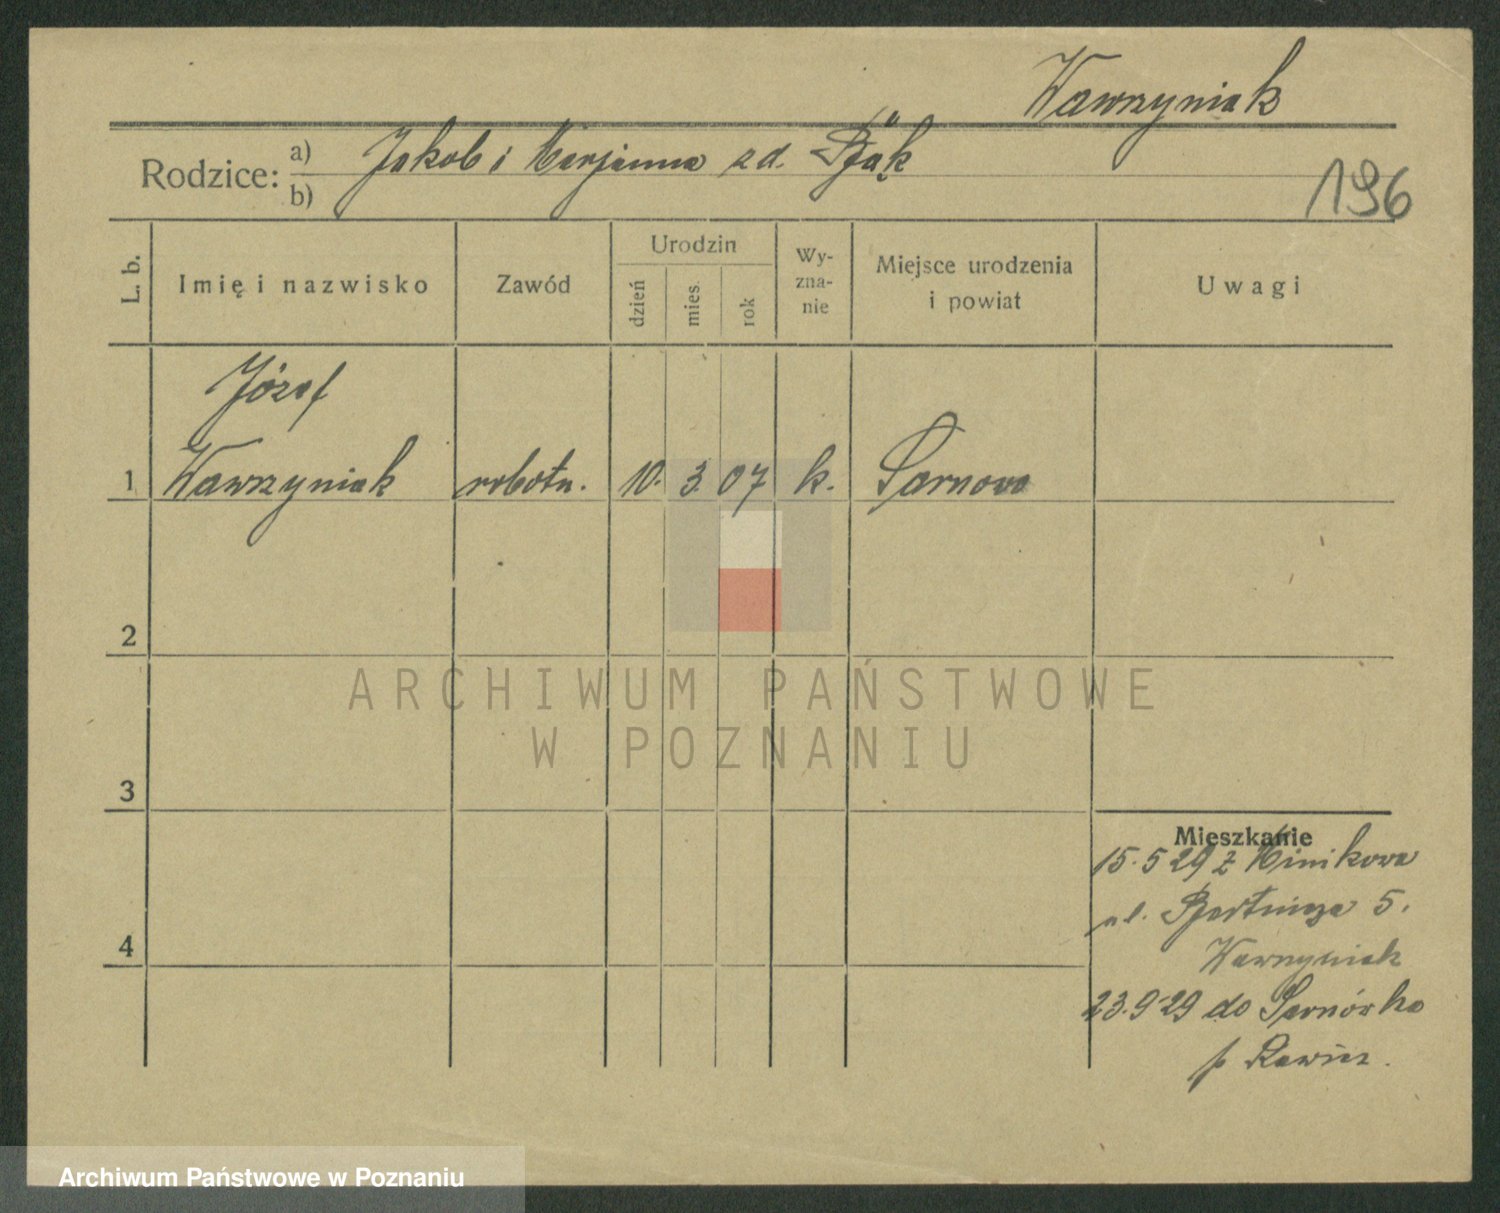 Wawrzyniak
Rodzice: a) Jakob i Marjanna z d. Bąk
b)
196
L. b.
Imię i nazwisko
Zawód
Urodzin
dzień
mies.
rok
Wy-
zna-
nie
Miejsce urodzenia
i powiat
Uwagi
Józef
1 Wawrzyniak robotn. 10. 3. 07 k. Sarnowa
2
ARCHIWUM PAŃSTWOWE
W POZNANIU
3
Mieszkanie
15.5 29 z Minikowa
ul. 5.
Wawrzyniak
4
23.9 29 do Sarnówka
p Rawicz.
Archiwum Państwowe w Poznaniu